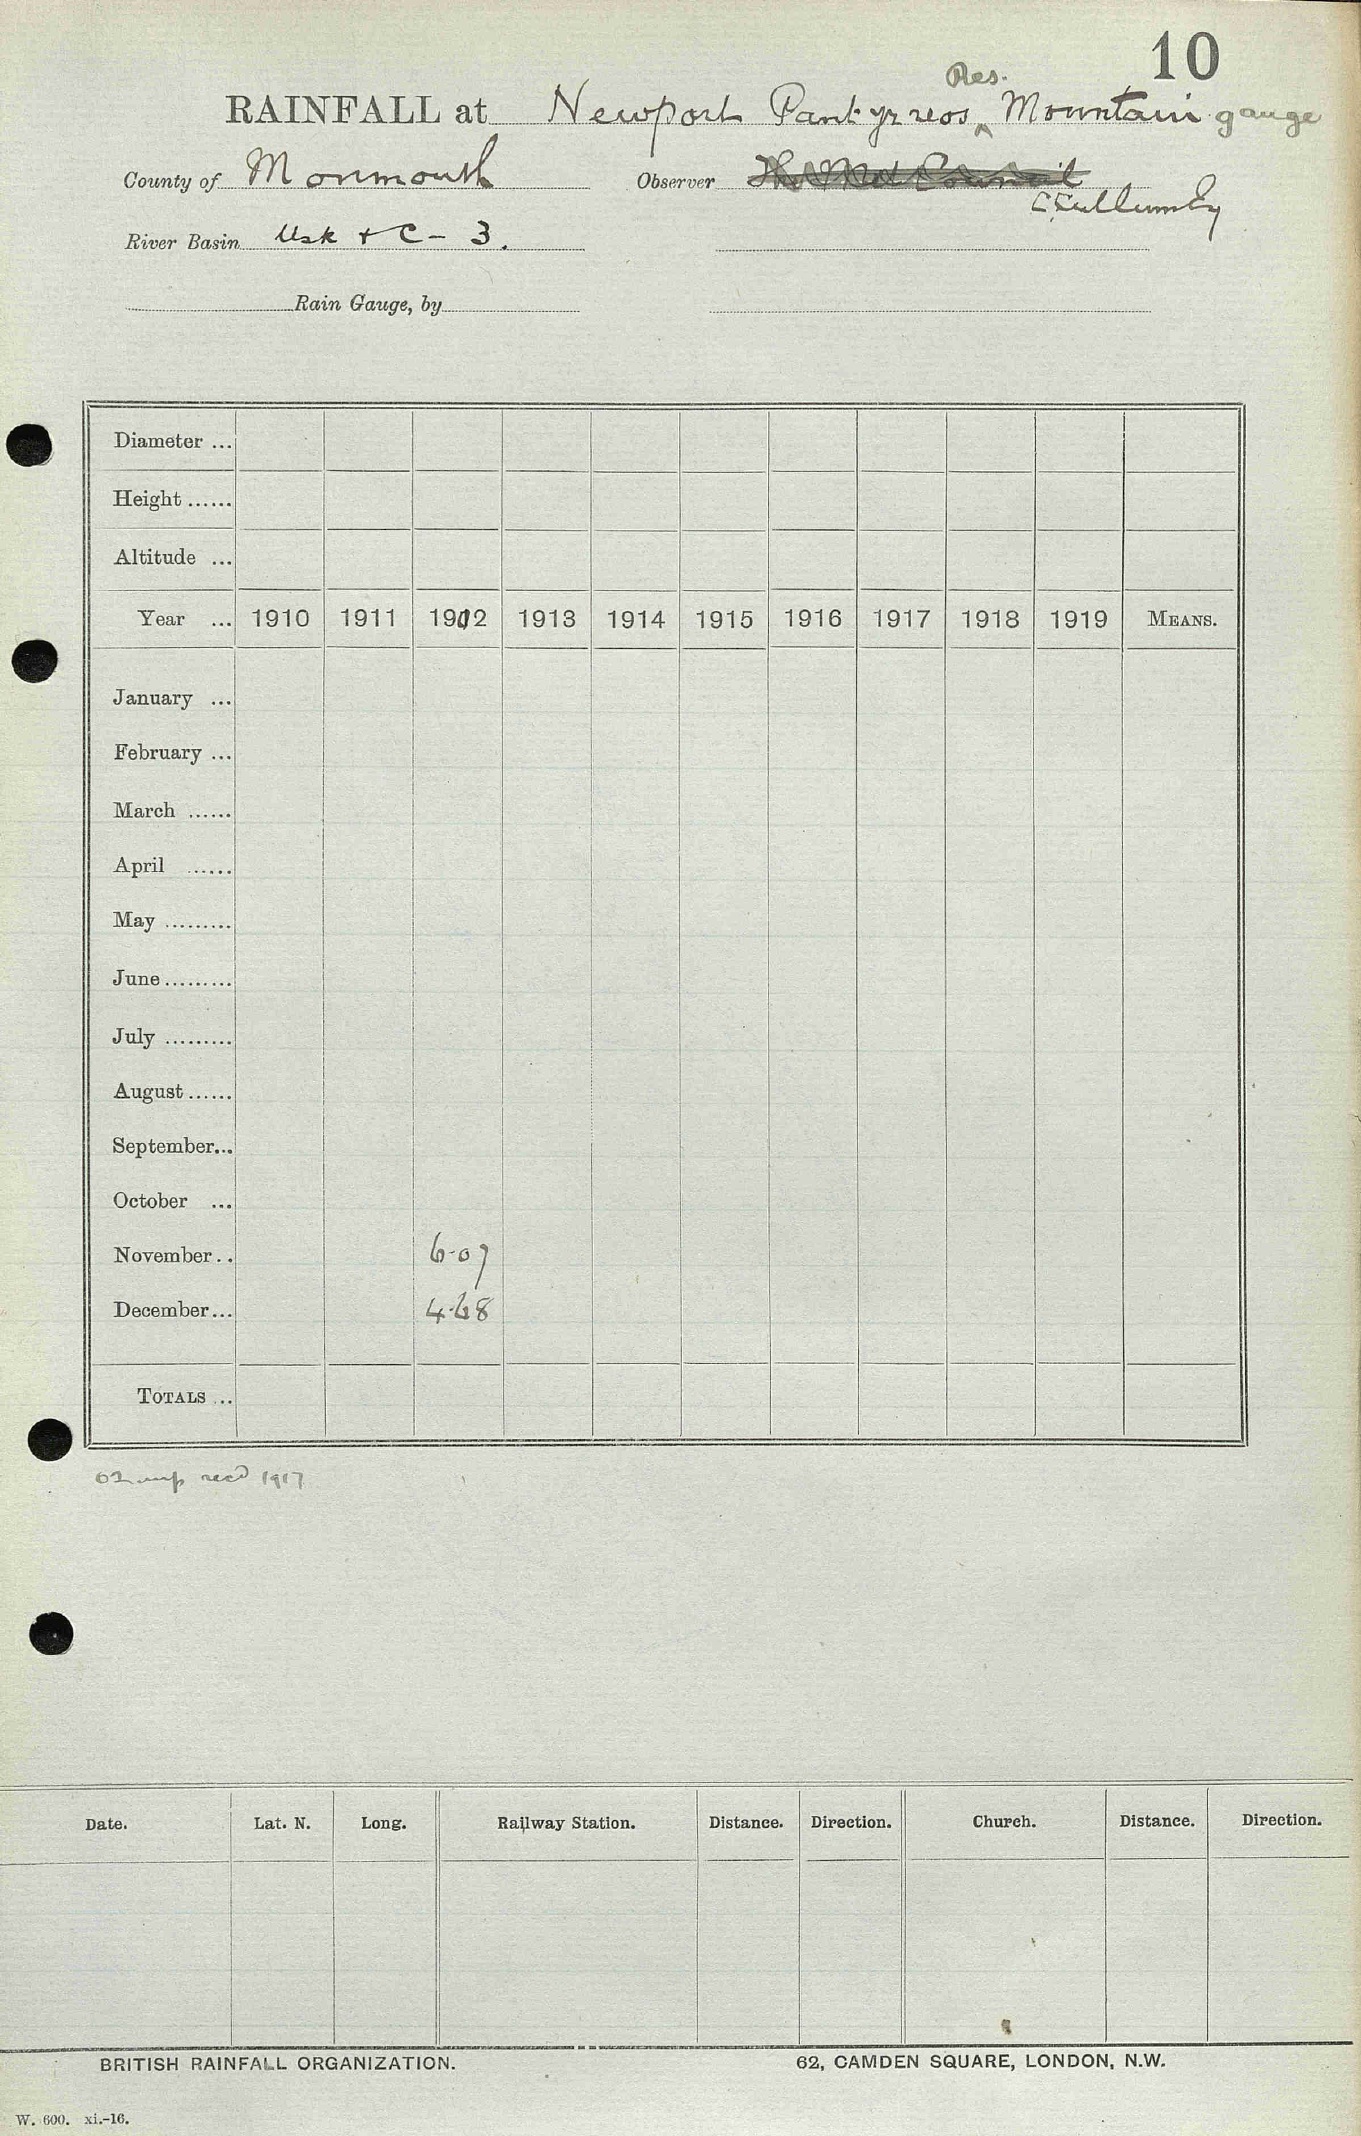 10
Res.
RAINFALL at Newport Pant-yr-reos Mountain gauge
County of Monmouth Observer
River Basin Usk + C - 3.
Rain Gauge, by
Diameter ...
Height ......
Altitude ...
Year ... 1910 1911 1912 1913 1914 1915 1916 1917 1918 1919 MEANS.
January ...
February ...
March ......
April ......
May .........
June .........
July .........
August ......
September...
October ...
November.. 6.07
December... 4.68
TOTALS ...
recd 1917
Date. Lat. N. Long. Railway Station. Distance. Direction. Church. Distance. Direction.
BRITISH RAINFALL ORGANIZATION. 62, CAMDEN SQUARE, LONDON, N.W.
W. 600. xi.-16.